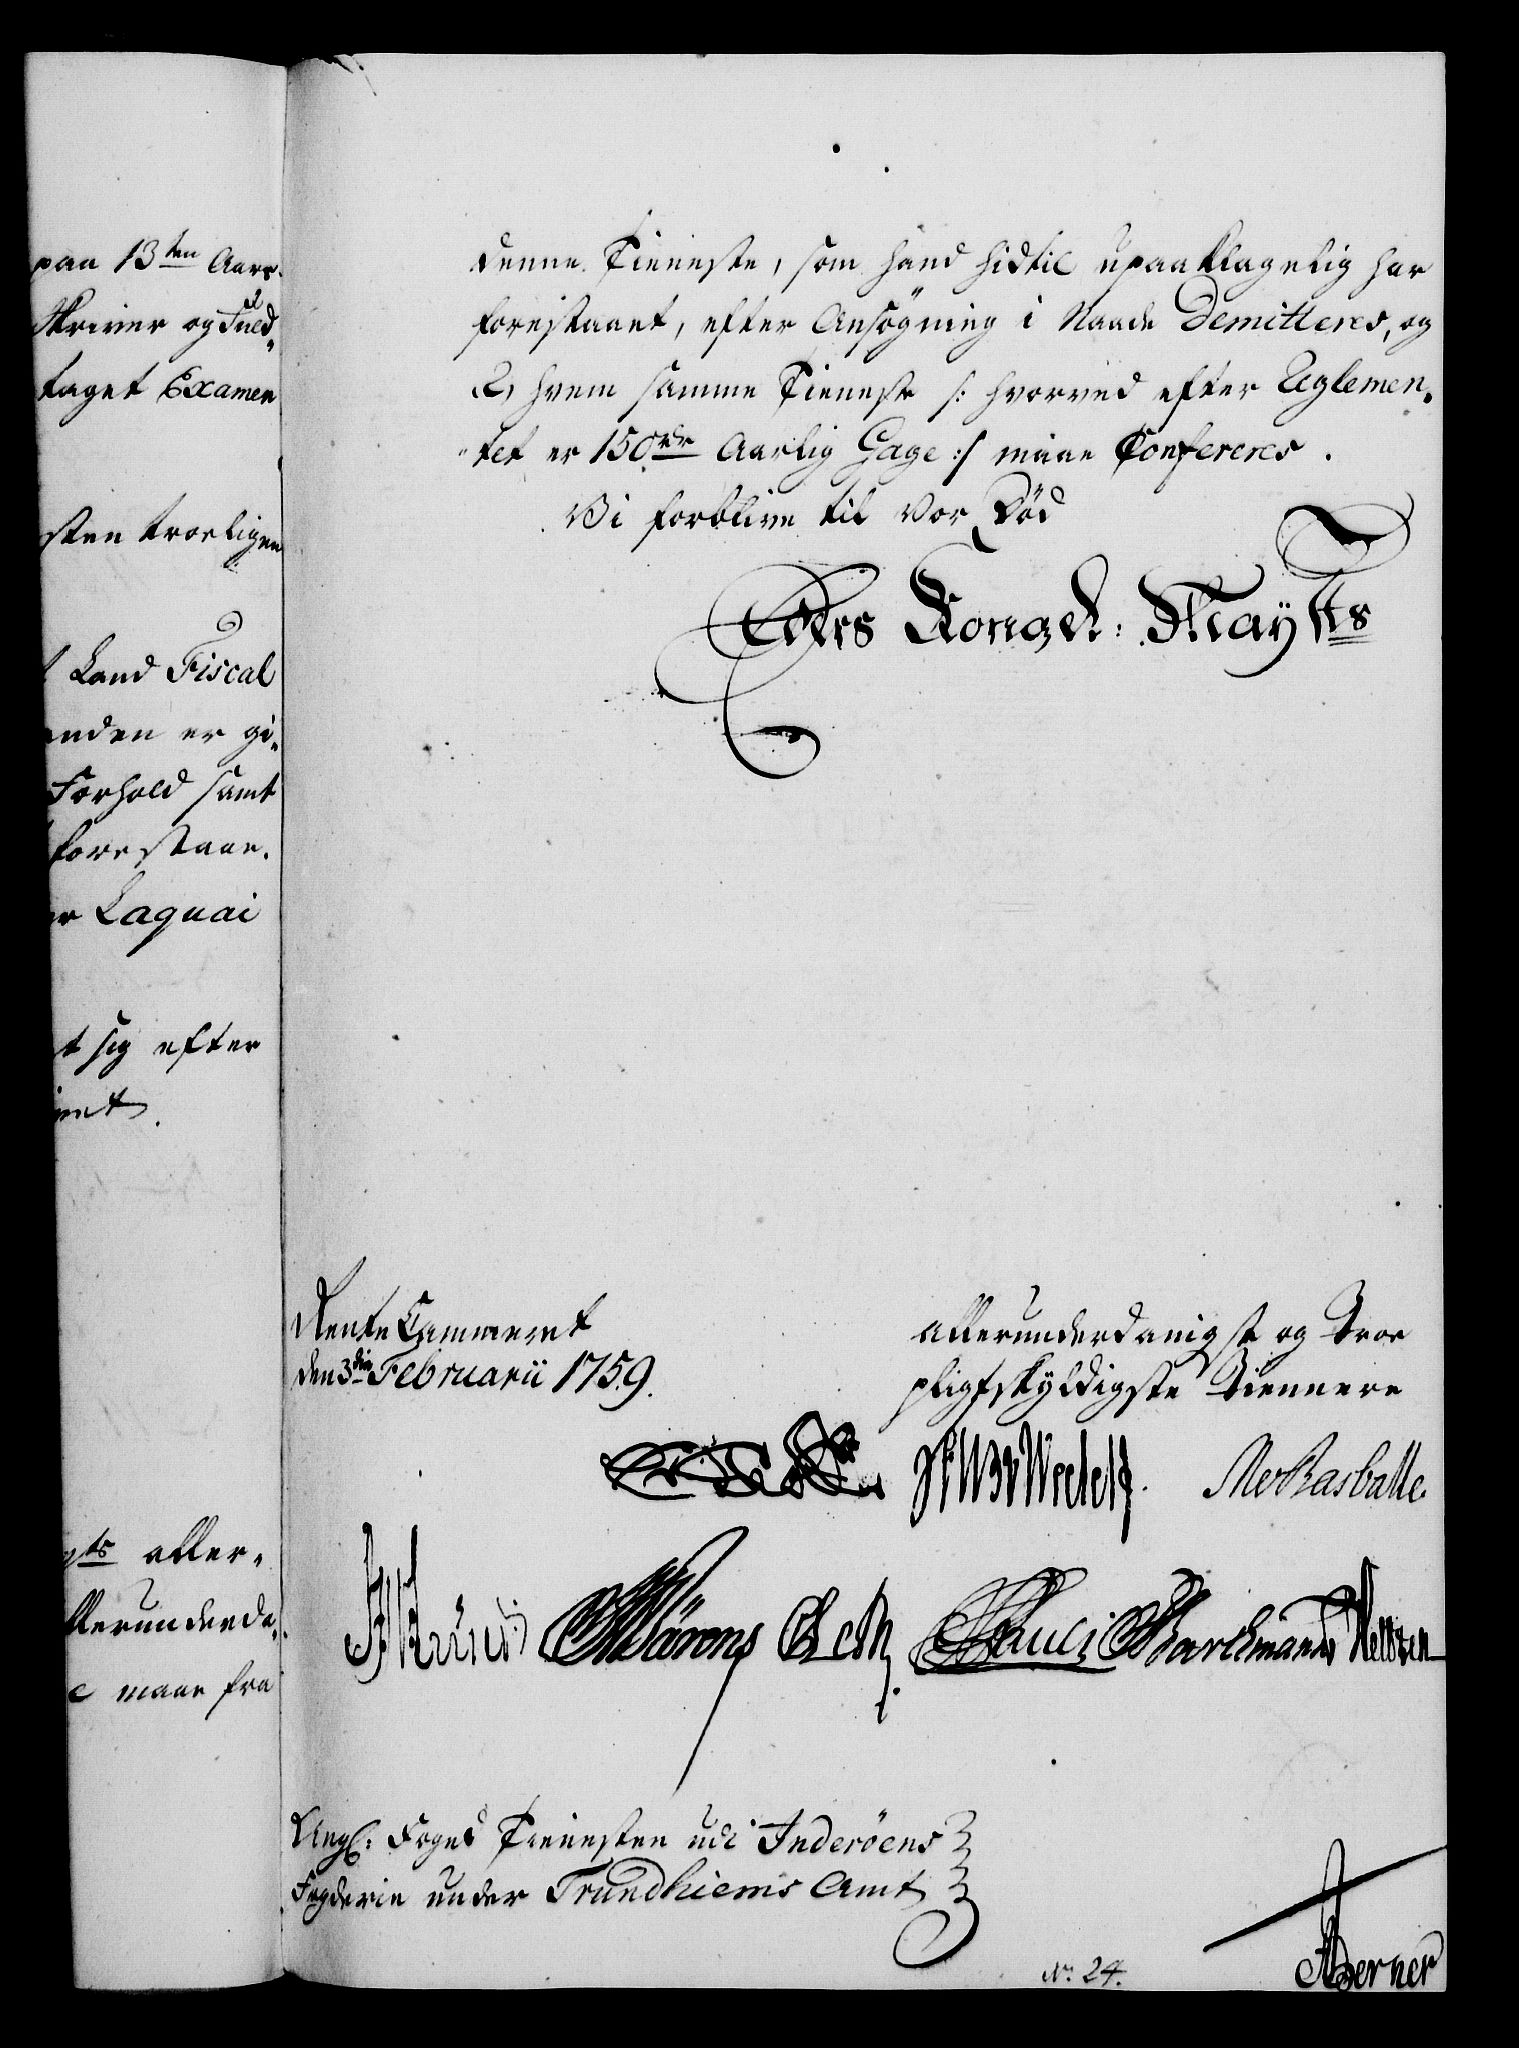 paa 13ten Aars
Skriver og Fuld„
taget Examen
sten troeligen
Land Fiscal
anden er gi„
Forhold samt
forestaae.
er Laquai
t sig efter
met.
yts aller„
llerunderda„
maae fra
denne Tieneste, som hand hidtil upaaklagelig har
forestaaet, efter Ansögning i Naade Demitteres, og
2, hvem samme Tieneste /: hvorved efter Reglemen„
„tet er 150 rdr Aarlig Gage :/ maae Confereres.
Vi forblive til vor Död
Eders Kongel: Mayts
Rente Cammeret
den 3die Februarii 1759.
allerunderdanigst og Troe
pligtskyldigste Tiennere
Rasballe
Pauli Barchmann
Ang: Foged Tienesten udi Inderöens
Fogderie under Trundhiems Amt
No 24.
Berner